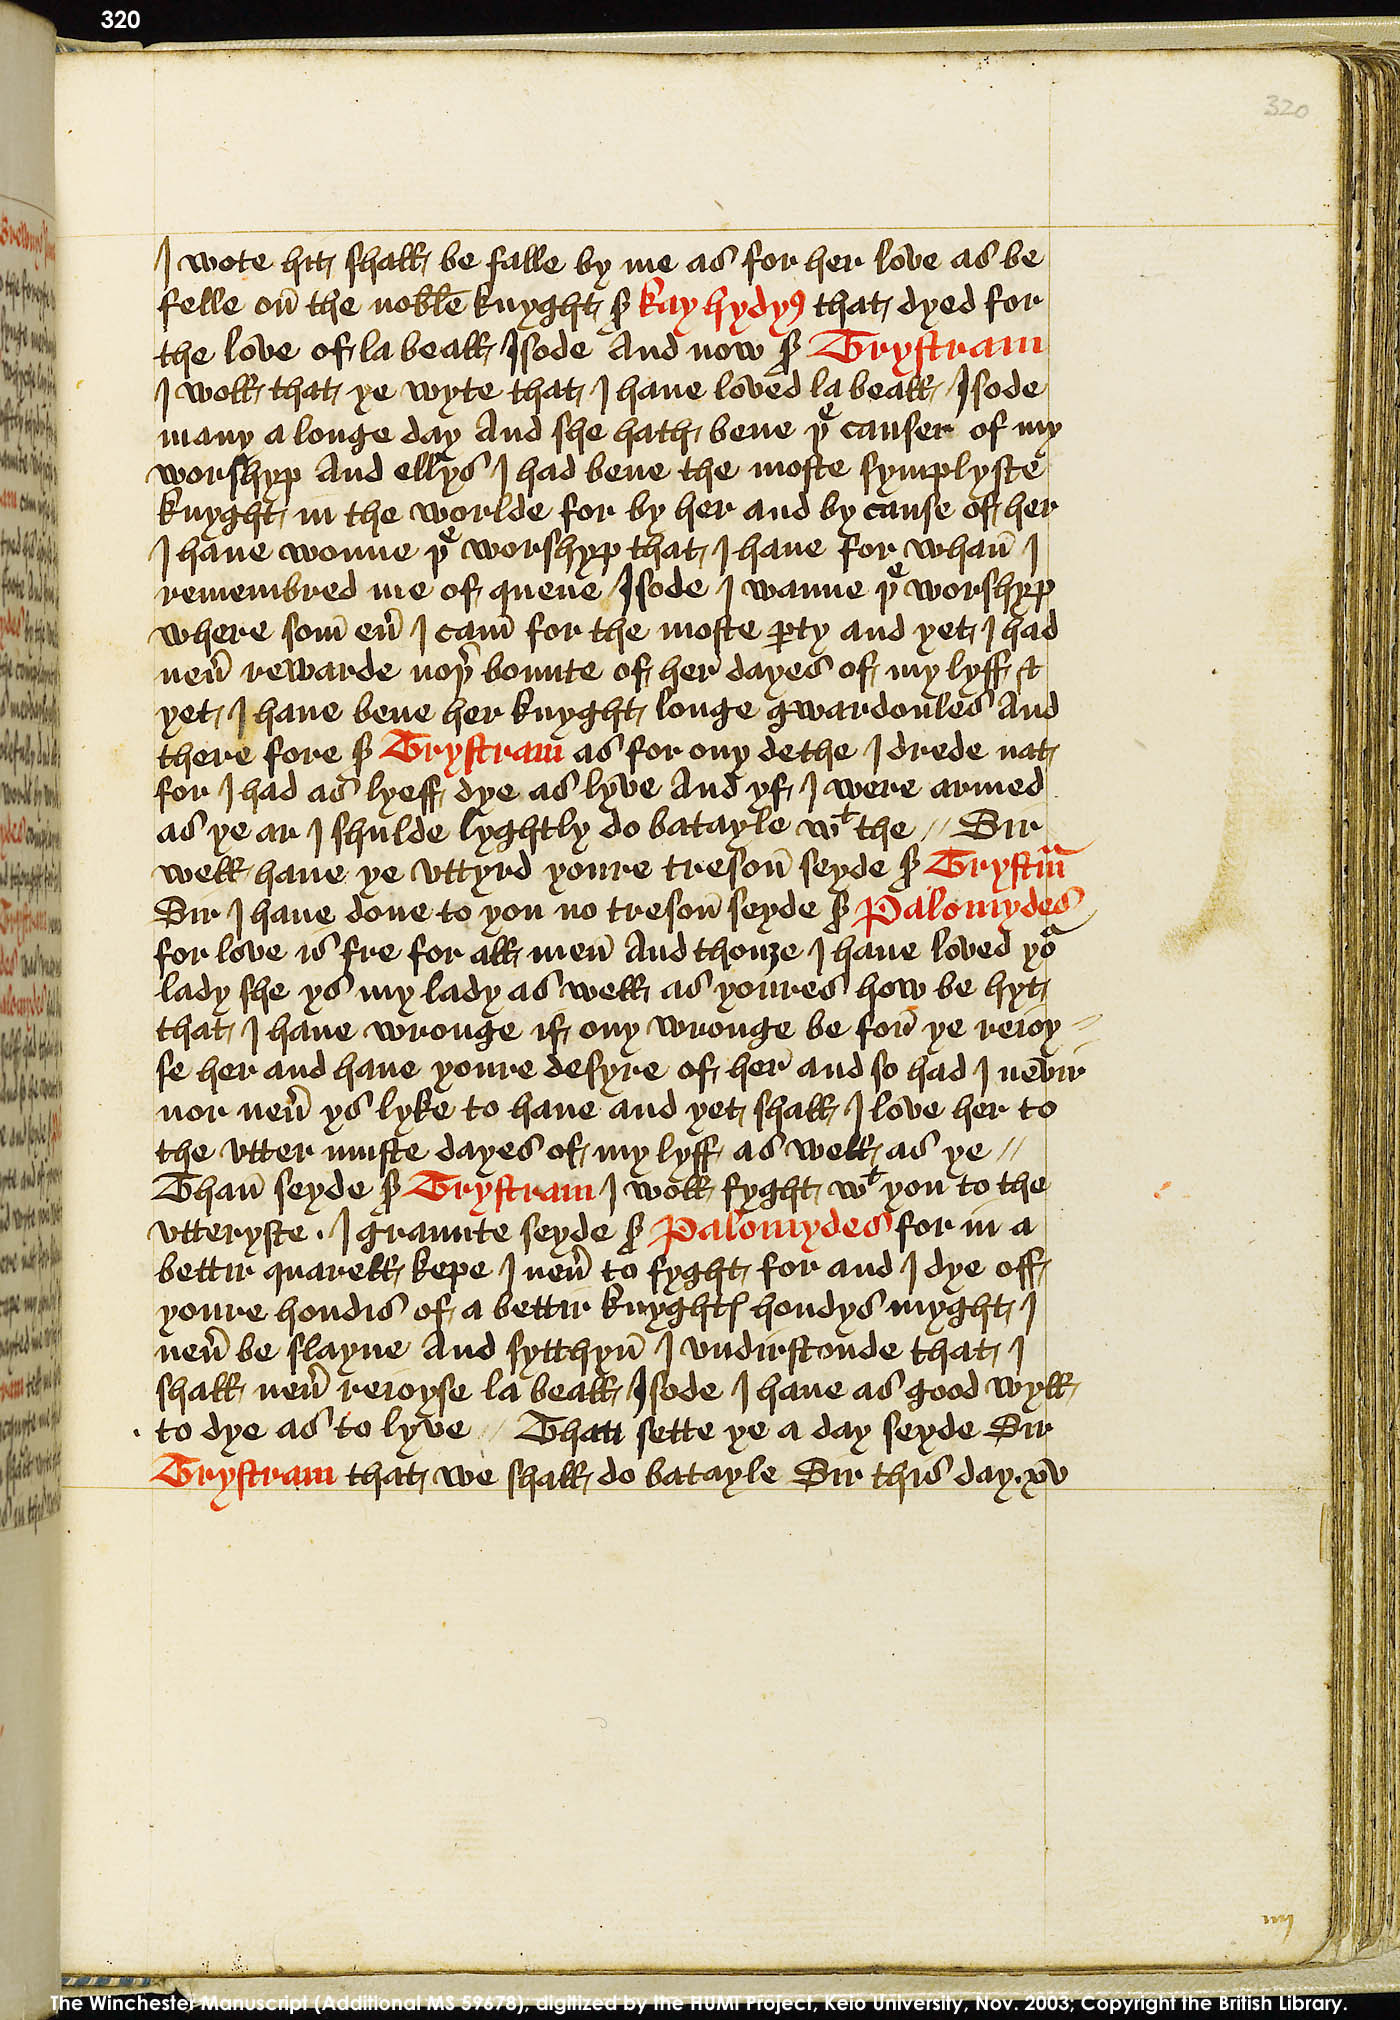 320
320
I wote hit shall be falle by me as for her love as be
felle on̄ the noble knyght sꝛ kay hydyꝰ that dyed for
the love of la beall Isode And now sꝛ Trystram
I woll that ye wyte that I haue loved la beall Isode
many a longe day And she hath bene þᵉ causer of my
worshyp And ellys I had bene the moste symplyste
knyght in the worlde for by her and by cause of her
I haue wonne þᵉ worshyp that I haue for whan̄ I
remembred me of quene Isode I wanne þᵉ worshyp
where som̄ eu̾ I cam̄ for the moste ꝑty and yet I had
neu̾ rewarde noþ̾ bounte of her dayes of my lyff ⁊
yet I haue bene her knyght longe gwardonles And
there fore sꝛ Trystram as for ony dethe I drede nat
for I had as lyeff dye as lyve And yf I were armed
as ye ar I shulde lyghtly do batayle wᵗ the // Sir
well haue ye vttyrd youre treson̄ seyde sꝛ Trystm̄
Sir I haue done to you no treson̄ seyde sꝛ Palomydes
for love is fre for all men̄ And thouȝe I haue loved yoᵃ
lady she ys my lady as well as youres how be hyt
that I haue wronge if ony wronge be for̄ ye reioy //
se her and haue youre desyre of her and so had I nevir
nor neu̾ ys lyke to haue and yet shall I love her to
the vtter muste dayes of my lyff as well as ye //
Than̄ seyde sꝛ Trystram I woll fyght wᵗ you to the
vtteryste . I graunte seyde sꝛ Palomydes for in a
bettir quarell kepe I neu̾ to fyght for and I dye off
youre hondis of a bettir knyghtꝭ hondys myght I
neu̾ be slayne And sytthyn̄ I vndirstonde that I
shall neu̾ reioyse la beall Isode I haue as good wyll
to dye as to lyve // Than sette ye a day seyde Sir
Trystram that we shall do batayle Sir this day . xv
iiij
The Winchester Manuscript (Additional MS 59678), digitized by the HUMI Project, Keio University, Nov. 2003; Copyright the British Library.